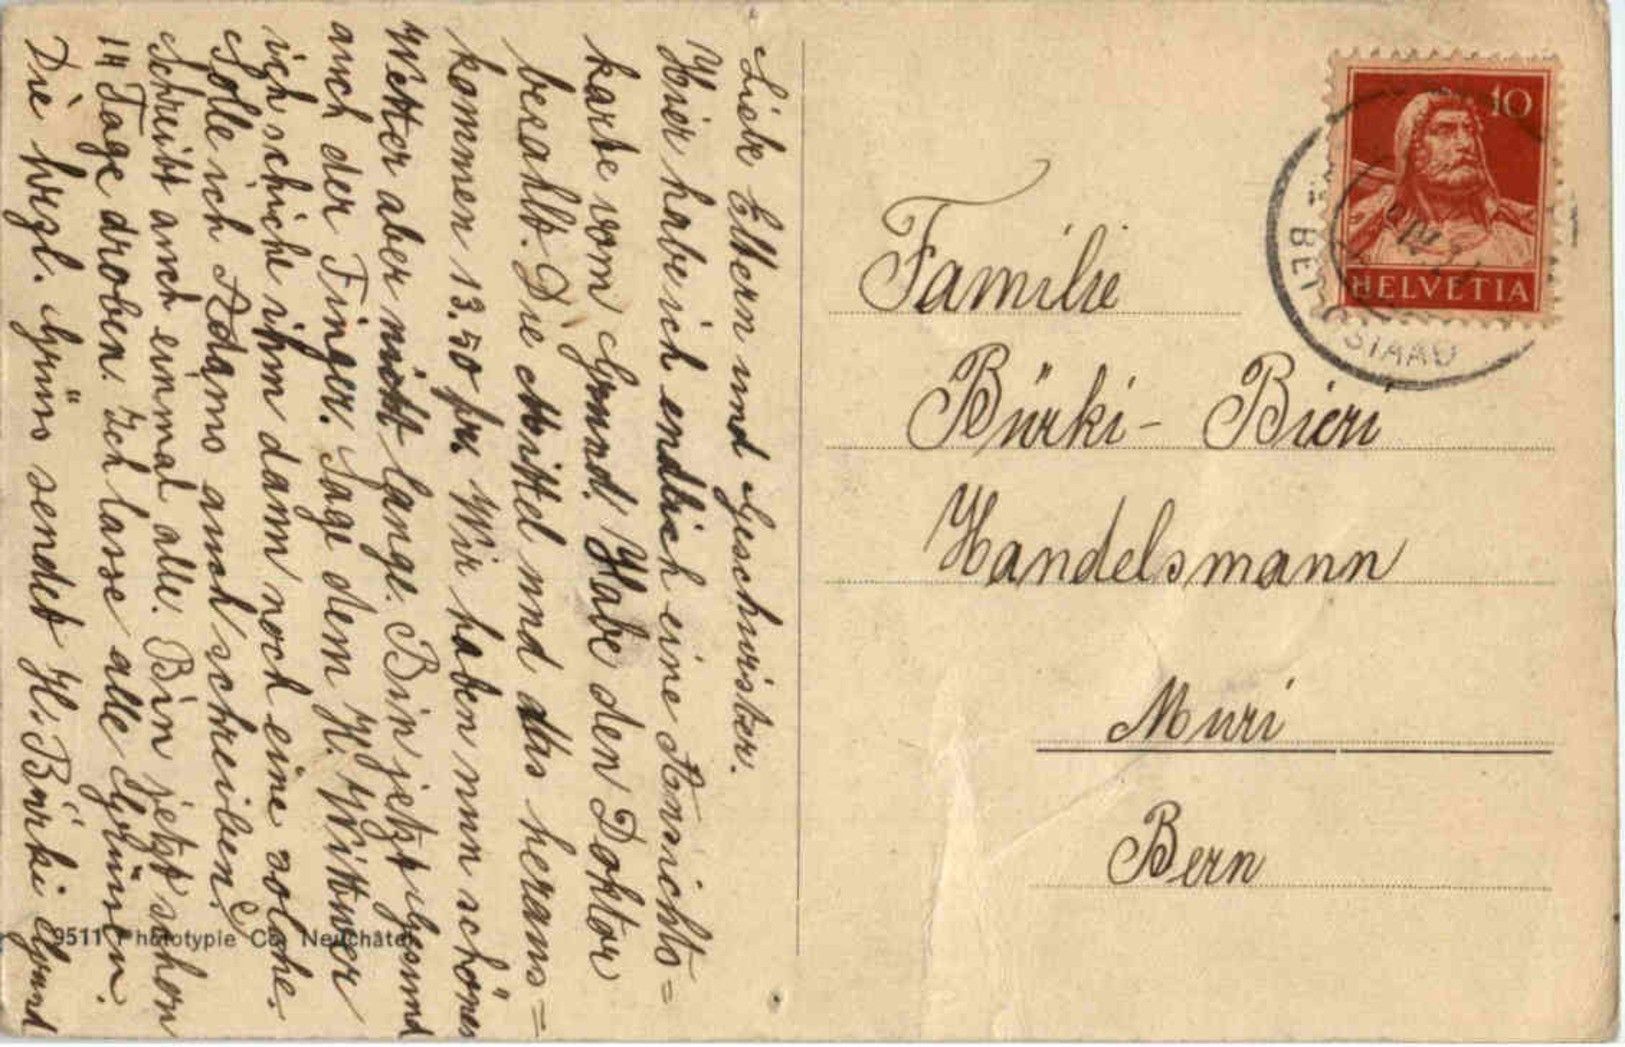 Liebe Eltern und Geschwister.
Hier habe ich endlich eine Ansichts=
karte vom Grund. Habe den Doktor
bezahlt. Die Mittel und das heraus=
kommen 13.50 fr. Wir haben nun schönes
Wetter aber nicht lange. Bin jetzt gesund
auch der Finger. Sage dem H. Wittwer
ich schicke ihm dann noch eine solche.
Solle ich Adams auch schreiben?
Schreibt auch einmal alle. Bin jetzt schon
14 Tage droben. Ich lasse alle Grüssen.
Die hrzl. Grüss sendet H. Bürki Grund
9511 Phototypie Co. Neuchâtel
10
HELVETIA
Familie
Bürki - Bieri
Handelsmann
Muri
Bern